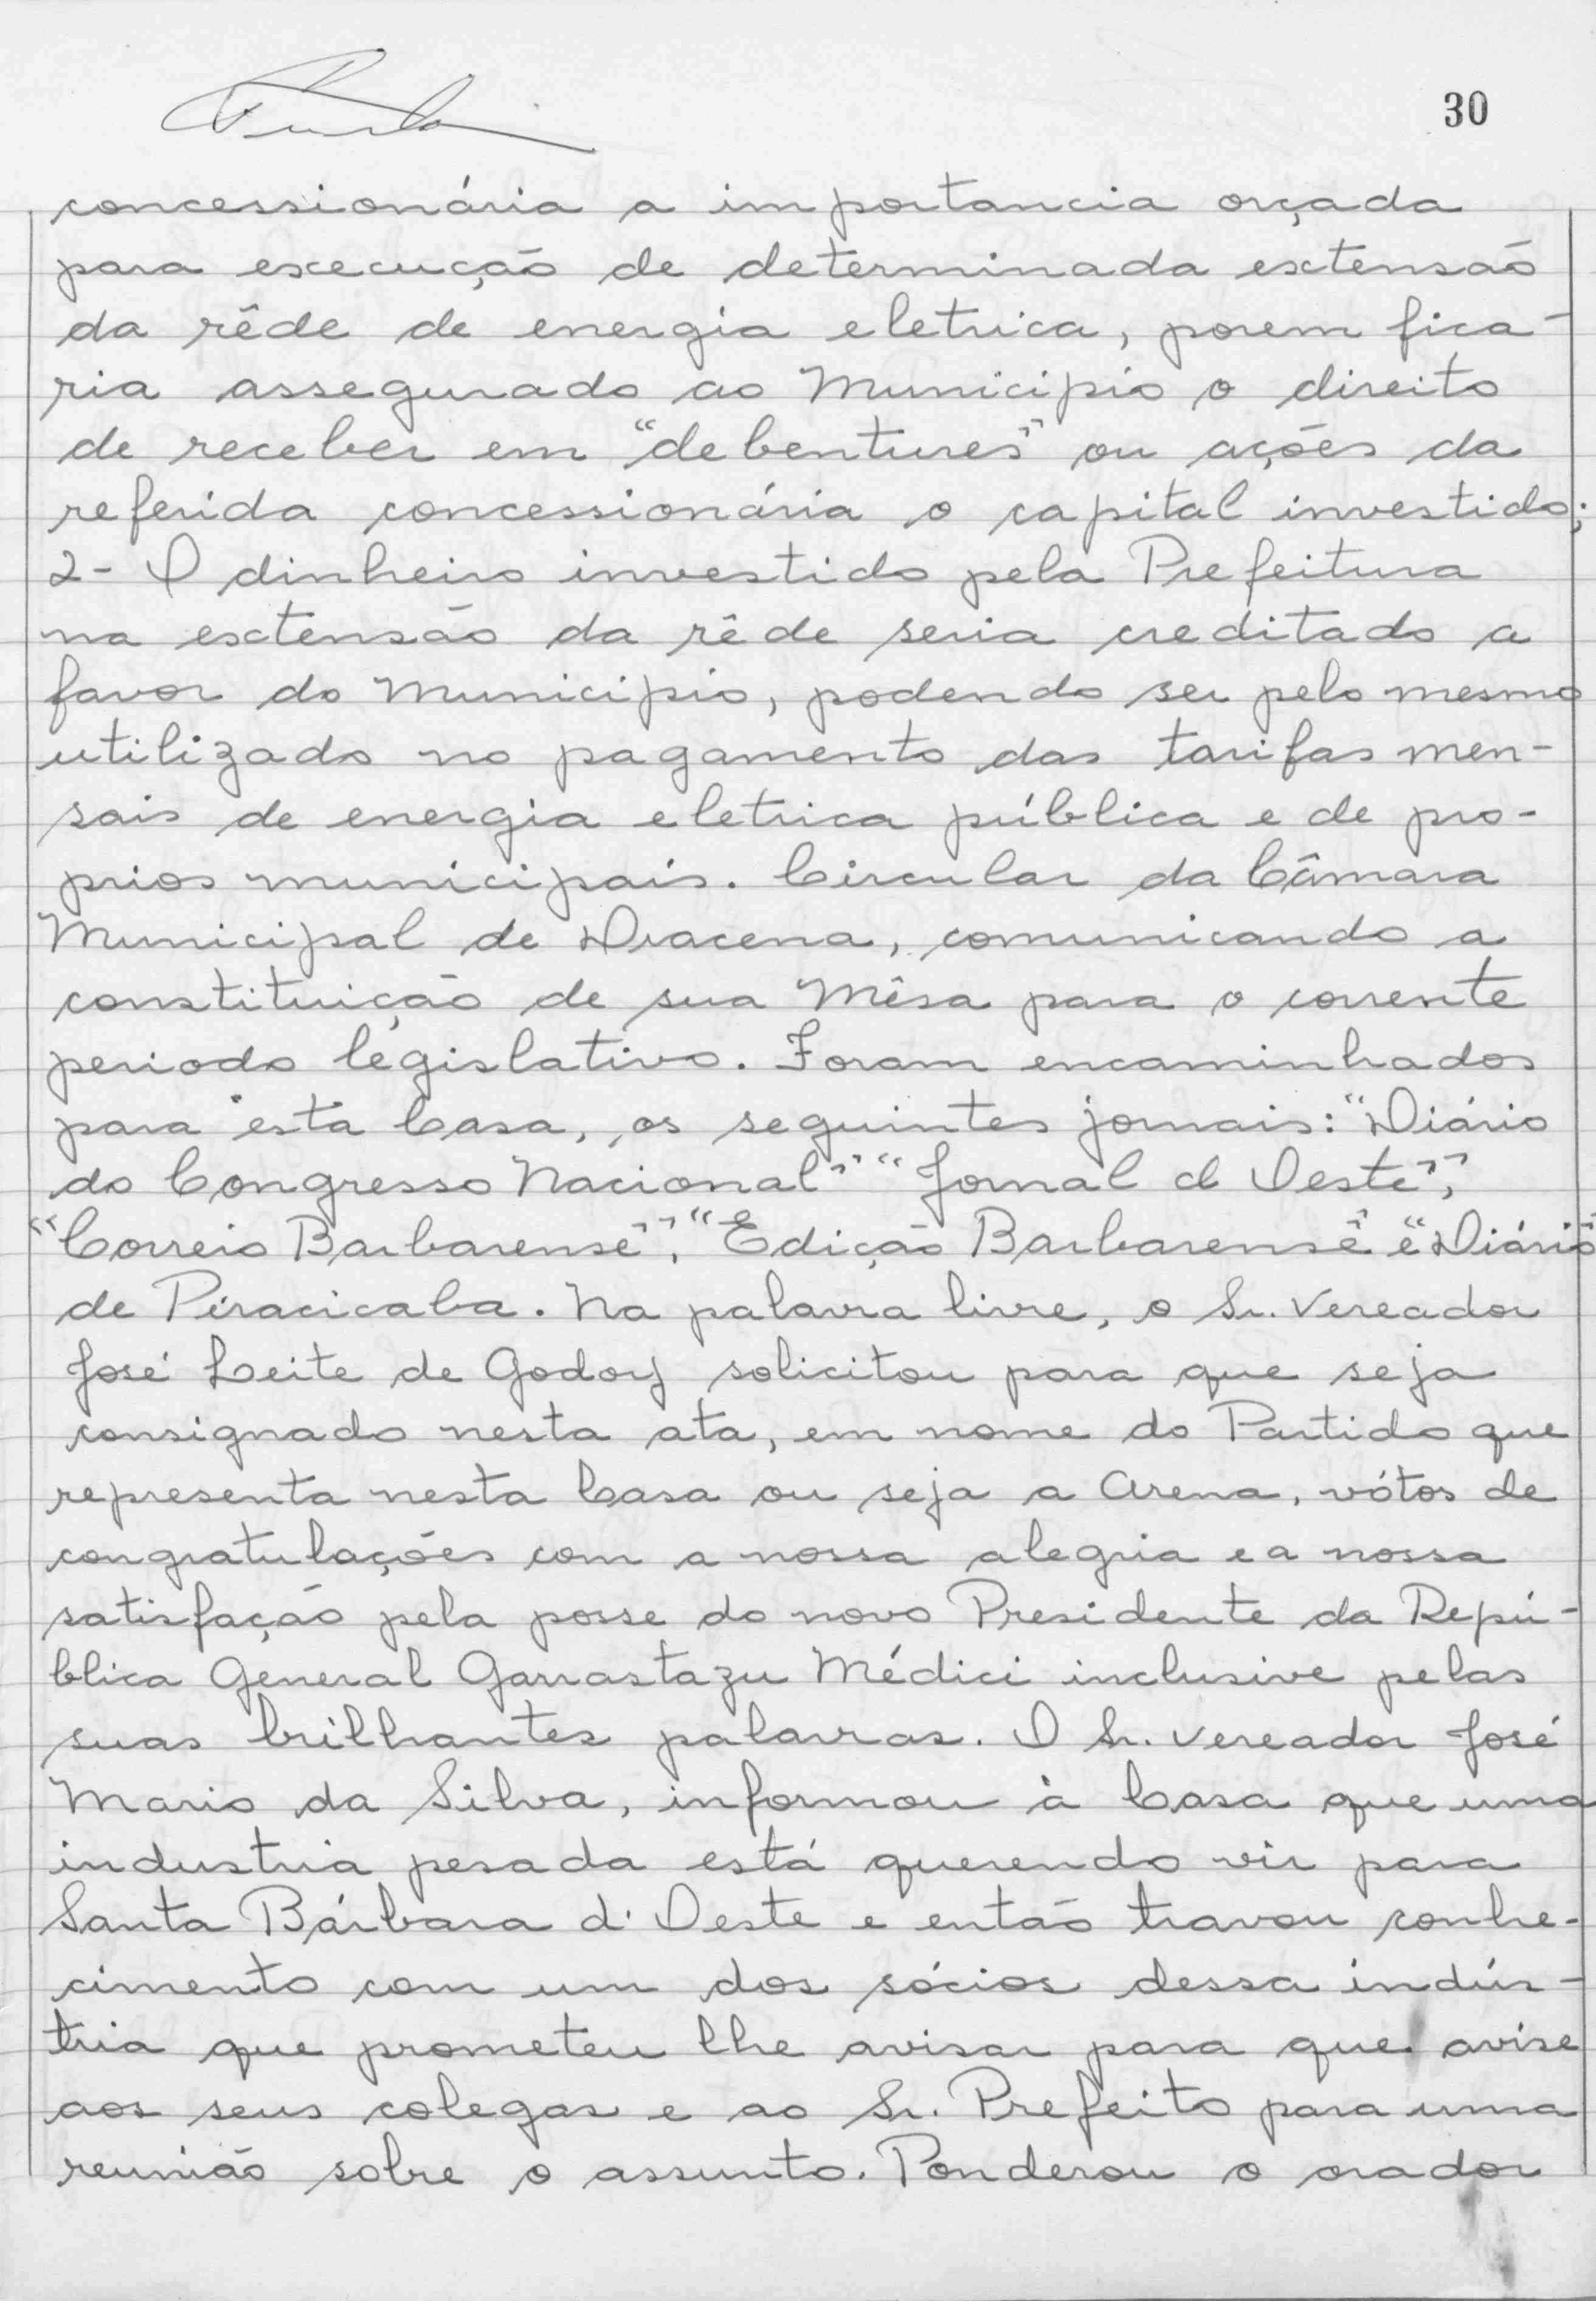 30
concessionária a importancia orçada
para execução de determinada extensão
da rêde de energia eletrica, porem fica-
ria assegurado ao Municipio o direito
de receber em "debentures" ou ações da
referida concessionária o capital investido;
2- O dinheiro investido pela Prefeitura
na extensão da rêde seria creditado a
favor do Municipio, podendo ser pelo mesmo
utilizado no pagamento das tarifas men-
sais de energia eletrica pública e de pro-
prios municipais. Circular da Câmara
Municipal de Dracena, comunicando a
constituição de sua Mêsa para o corrente
periodo legislativo. Foram encaminhados
para esta Casa, os seguintes jornais: "Diário
do Congresso Nacional" "Jornal d Oeste",
"Correio Barbarense", "Edição Barbarense" e "Diário"
de Piracicaba. Na palavra livre, o Sr. Vereador
José Leite de Godoy solicitou para que seja
consignado nesta ata, em nome do Partido que
representa nesta Casa ou seja a Arena, vótos de
congratulações com a nossa alegria e a nossa
satisfação pela posse do novo Presidente da Repú-
blica General Garrastazu Médici inclusive pelas
suas brilhantes palavras. O Sr. Vereador José
Mario da Silva, informou à Casa que uma
industria pesada está querendo vir para
Santa Bárbara d'Oeste e então travou conhe-
cimento com um dos sócios dessa indús-
tria que prometeu lhe avisar para que avise
aos seus colegas e ao Sr. Prefeito para uma
reunião sobre o assunto. Ponderou o orador